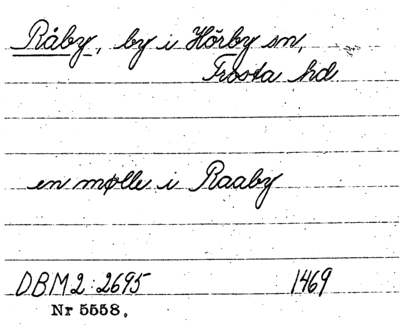 Råby, by i Hörby sn,
Frosta hd
en mølle i Raaby
DBM2:2695 1469
Nr 5558.